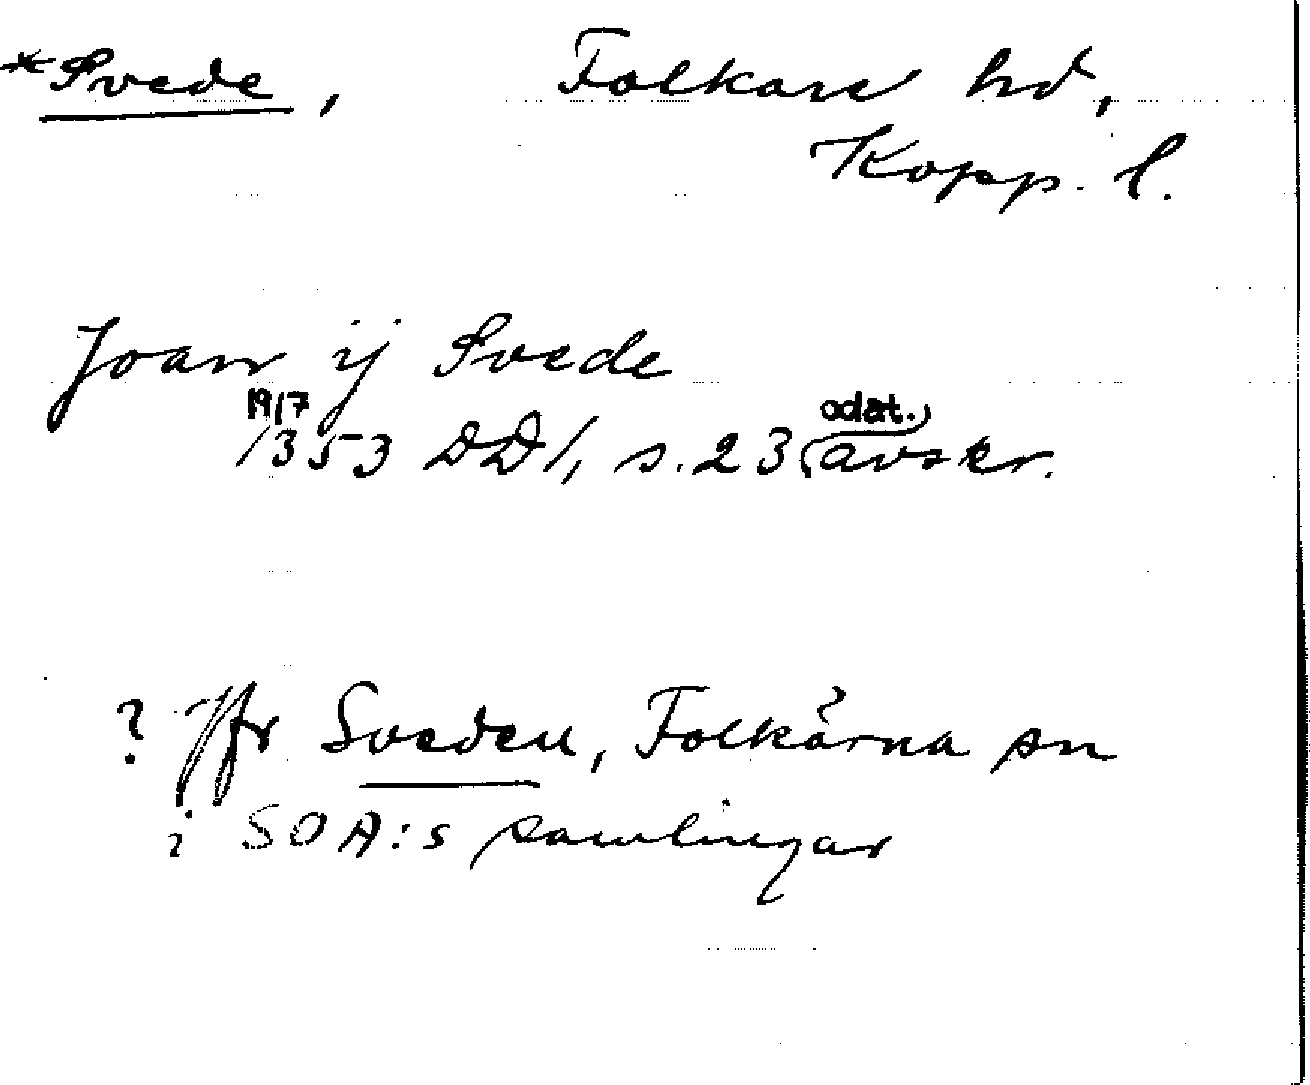 *Svede, Folkare hd,
Kopp. l.
Joan ij Svede
19/7 odat.
1353 DD1, s. 23 (avskr.)
? Jfr Sveden, Folkärna sn
i SOA:s samlingar